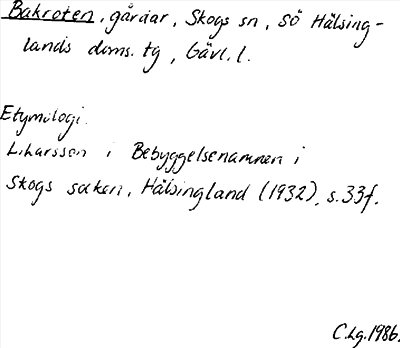 Bakroten, gårdar, Skogs sn, Sö Hälsing-
lands doms. tg, Gävl. l.
Etymologi.
L. Larsson i Bebyggelsenamnen i
Skogs socken, Hälsingland (1932), s. 33f.
C. Lg. 1986.